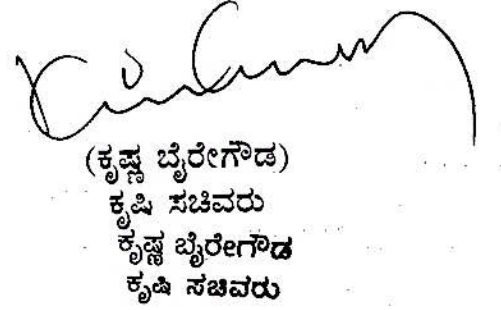 (ಕೃಷ್ಣ ಬೈರೇಗೌಡ)
ಕೃಷಿ ಸಚಿವರು
ಕೃಷ್ಣ ಬೈರೇಗೌಡ
ಕೃಷಿ ಸಚಿವರು